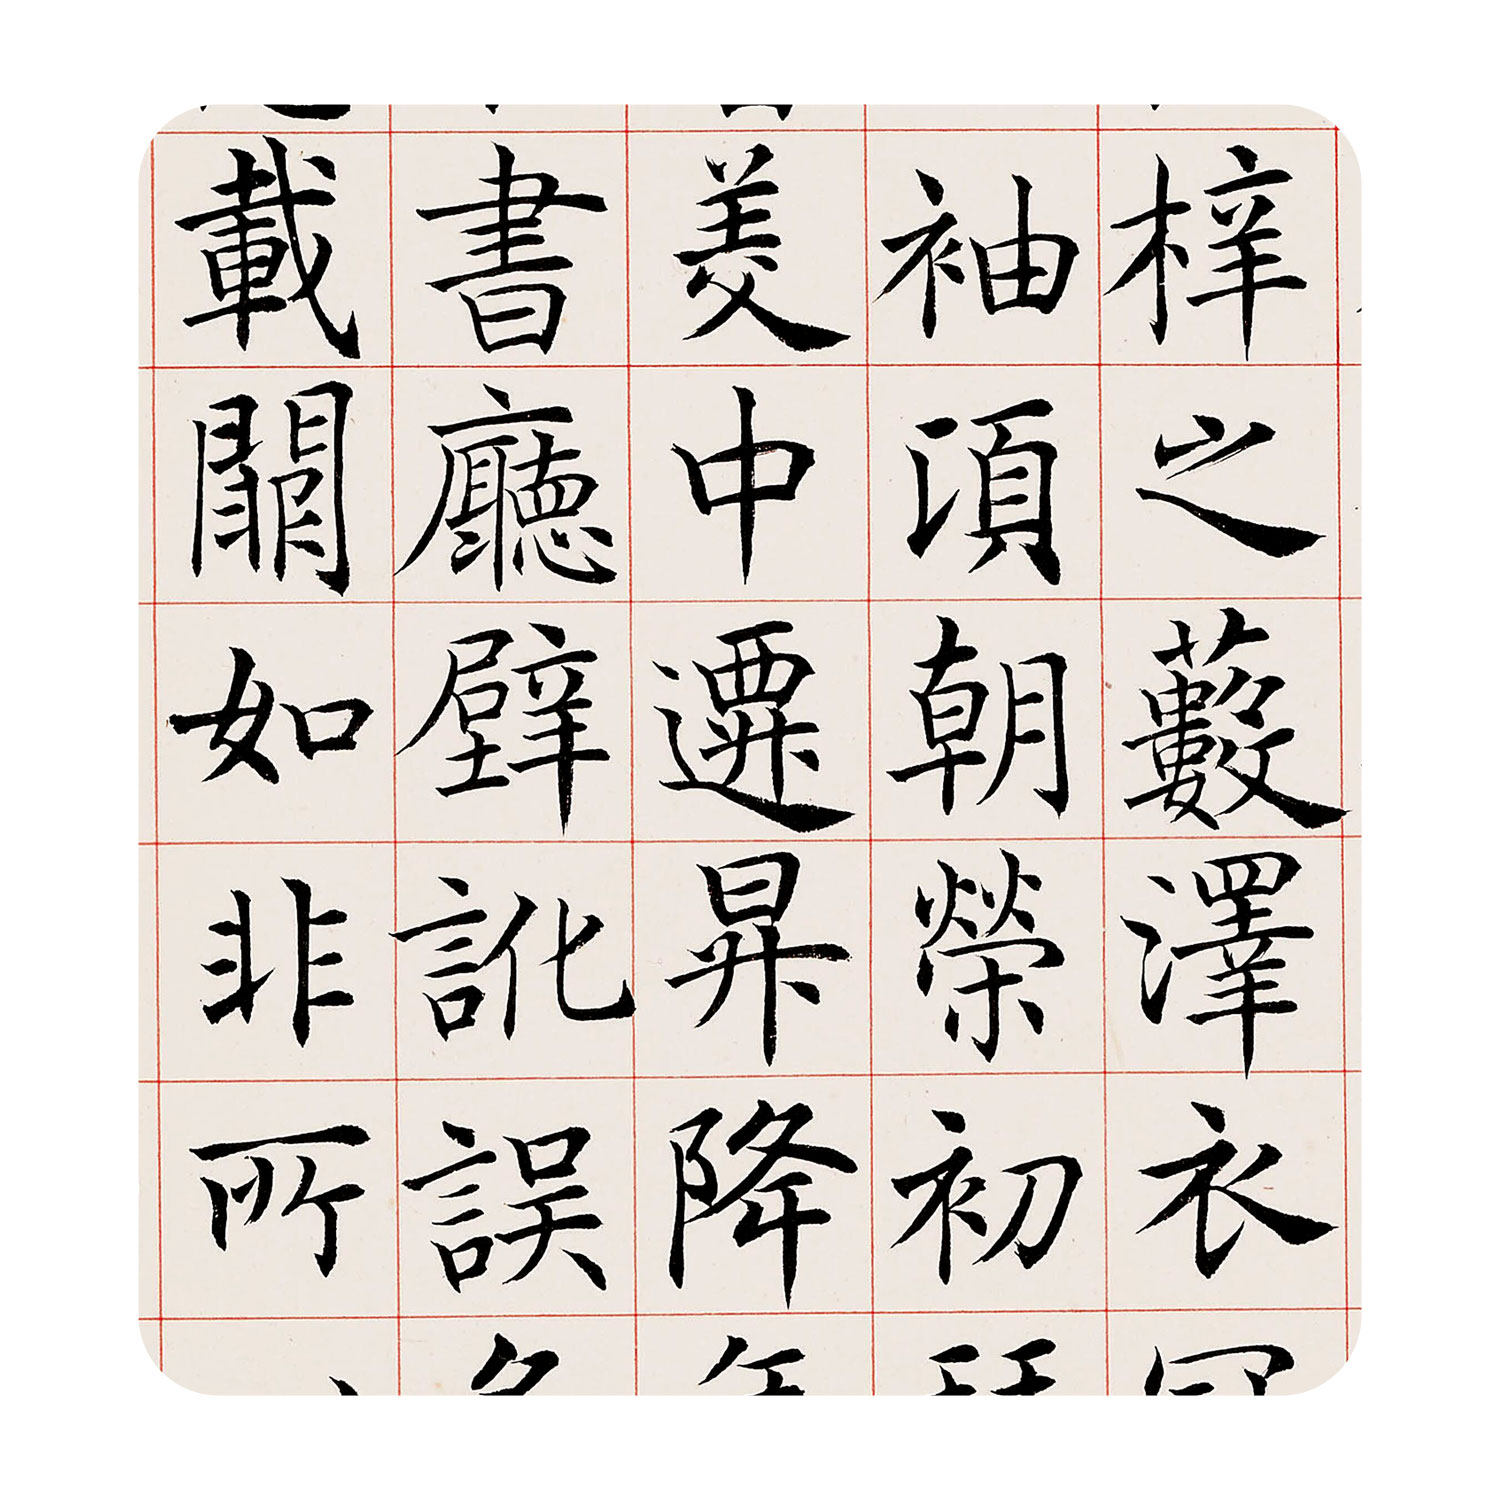 梓之藪澤衣
袖湏朝榮初
美中遷昇降
書廳壁訛誤
載闕如非所